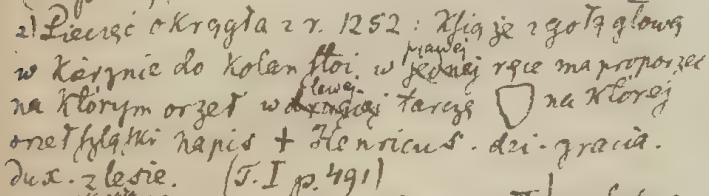 2) Pieczęć okrągła z r. 1252: Książe z gołą głową
w Kirynie do Kolan stoi. w prawej jednej ręce ma proporzec
na którym orzeł w lewej drugiej tarczę na której
orzeł szląski napis + Henricus. dzi. gracia.
dux. zlesie. (T. I p. 491)